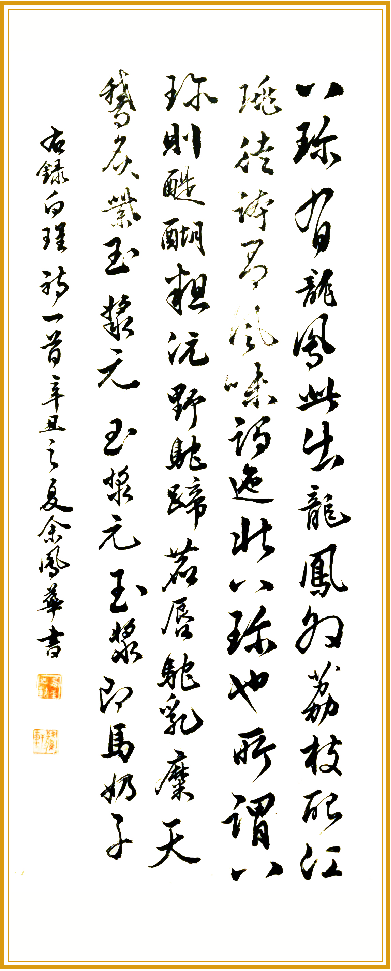 八珍肴龍鳳此出龍鳳外荔枝配江
珧徒誇有風味迤北八珍也所謂八
珍則醍醐沆野駝蹄鹿唇駝乳糜天
鵝炙紫玉漿元玉漿元玉漿即馬奶子
右錄白珽詩一首辛丑之夏余鳳華書